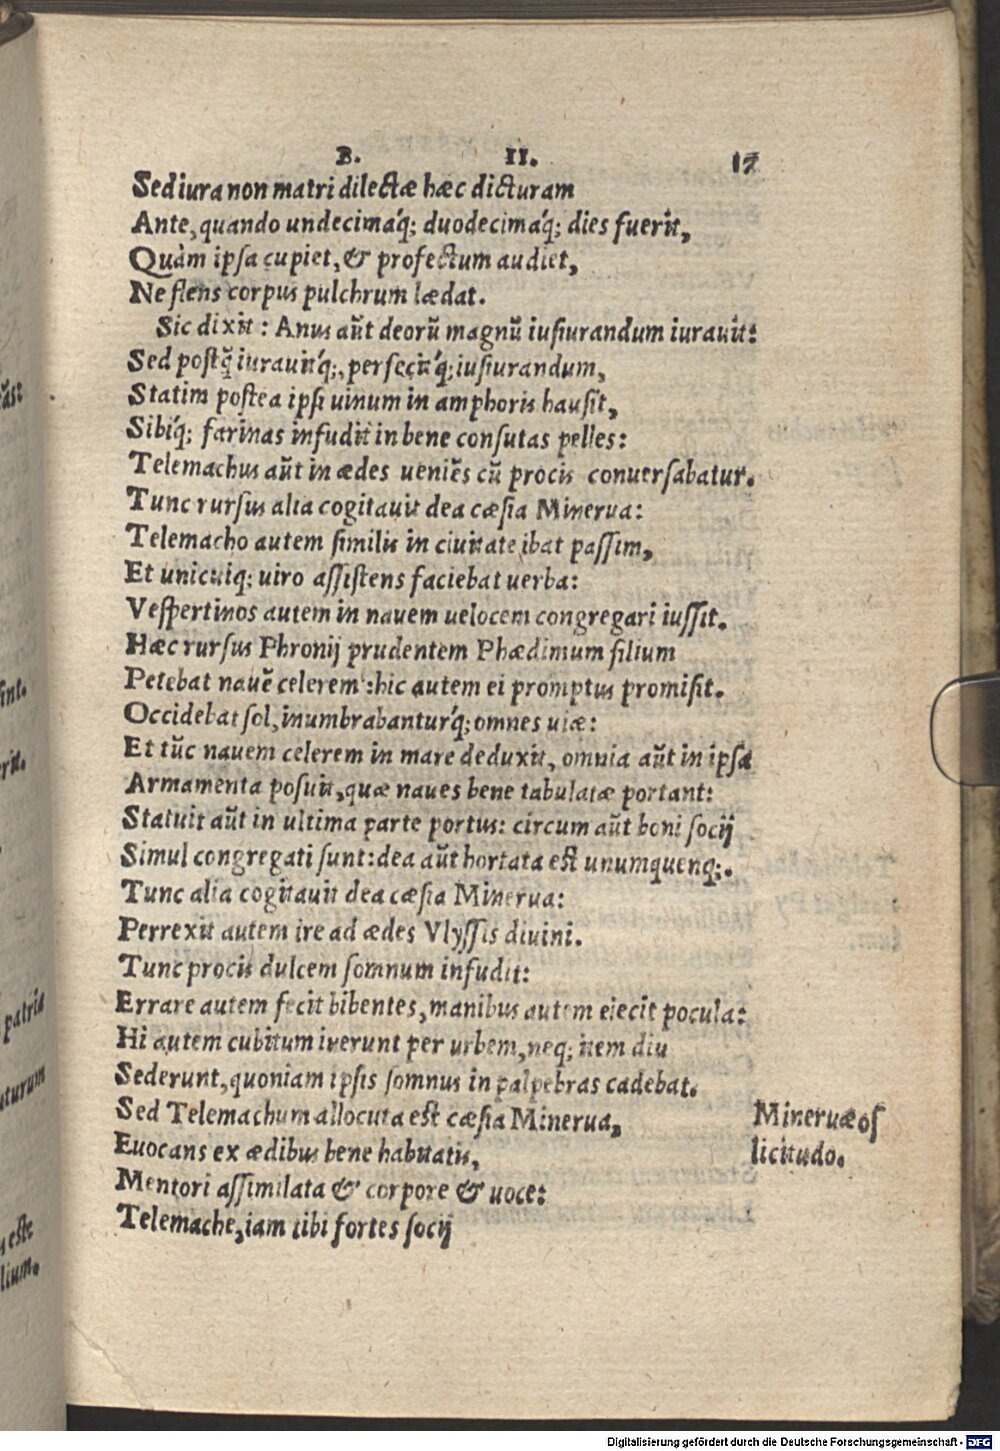 B. II. 17
Sed iura non matri dilectæ hæc dicturam
Ante, quando undecimáq; duodecimáq; dies fuerit,
Quàm ipsa cupiet, & profectum audiet,
Ne flens corpus pulchrum lædat.
Sic dixit: Anus aũt deorũ magnũ iusiurandum iurauit:
Sed postq̃ iurauitq́;, persecitq́; iusiurandum,
Statim postea ipsi uinum in amphoris hausit,
Sibiq́; farinas infudit in bene consutas pelles:
Telemachus aũt in ædes ueniẽs cũ procis conuersabatur.
Tunc rursus alia cogitauit dea cæsia Minerua:
Telemacho autem similis in ciuitate ibat passim,
Et unicuiq; uiro assistens faciebat uerba:
Vespertinos autem in nauem uelocem congregari iussit.
Hæc rursus Phronij prudentem Phædimum filium
Petebat nauẽ celerem: hic autem ei promptus promisit.
Occidebat sol, inumbrabanturq́; omnes uiæ:
Et tũc nauem celerem in mare deduxit, omnia aũt in ipsa
Armamenta posuit, quæ naues bene tabulatæ portant:
Statuit aũt in ultima parte portus: circum aũt boni socij
Simul congregati sunt: dea aũt hortata est unumquenq;.
Tunc alia cogitauit dea cæsia Minerua:
Perrexit autem ire ad ædes Vlyssis diuini.
Tunc procis dulcem somnum infudit:
Errare autem fecit bibentes, manibus autem eiecit pocula:
Hi autem cubitum iuerunt per urbem, neq; item diu
Sederunt, quoniam ipsis somnus in palpebras cadebat.
Sed Telemachum allocuta est cæsia Minerua,
Euocans ex ædibus bene habitatis,
Mentori assimilata & corpore & uoce:
Telemache, iam tibi fortes socij
Mineruæ os
licitudo.
patria
aturum
est:
lium.
Digitalisierung gefördert durch die Deutsche Forschungsgemeinschaft - DFG